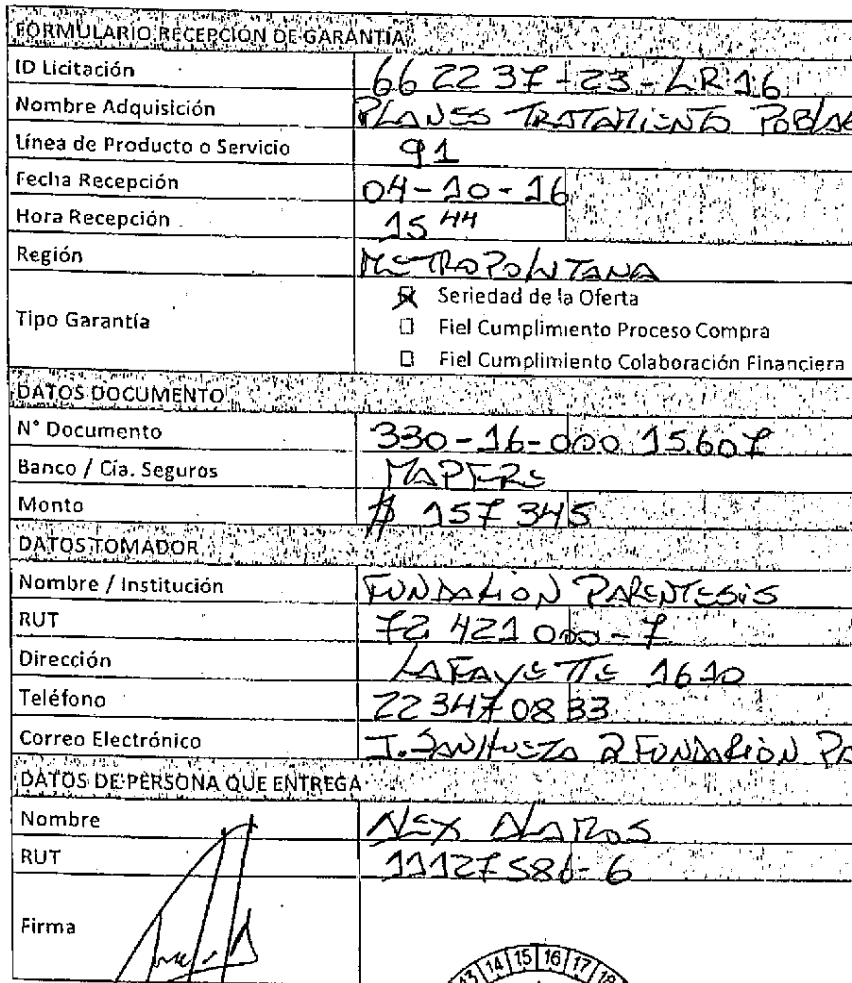 FORMULARIO RECEPCIÓN DE GARANTÍA
ID Licitación 662237-23-LR16
Nombre Adquisición PLANES TRATAMIENTO POBLAC
Línea de Producto o Servicio 91
Fecha Recepción 04-10-16
Hora Recepción 15 44
Región METROPOLITANA
Tipo Garantía
Seriedad de la Oferta
Fiel Cumplimiento Proceso Compra
Fiel Cumplimiento Colaboración Financiera
DATOS DOCUMENTO
N° Documento 330-16-000 15607
Banco / Cía. Seguros MAPFRE
Monto $ 157 345
DATOS TOMADOR
Nombre / Institución FUNDACION PARENTESIS
RUT 72 421 000-7
Dirección LAFAYETTE 1610
Teléfono 22 347 08 33
Correo Electrónico J.SANHUEZA @ FUNDACIÓN PA
DATOS DE PERSONA QUE ENTREGA
Nombre ALEX
RUT 11127586-6
Firma
13 14 15 16 17 18